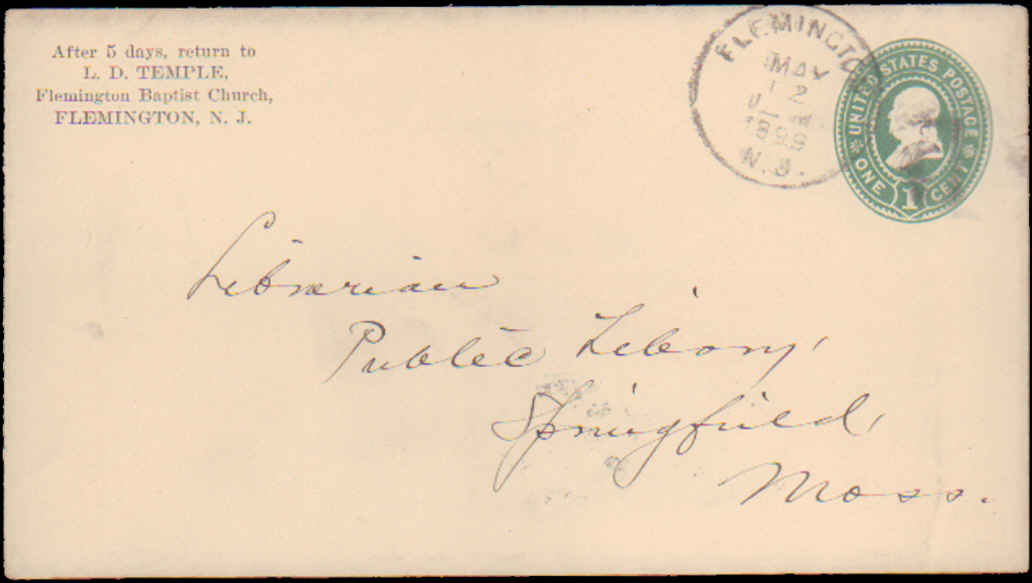 After 5 days, return to
L. D. TEMPLE,
Flemington Baptist Church,
FLEMINGTON, N. J.
FLEMINGTO
MAY
12
N. J.
UNITED STATES POSTAGE
ONE 1 CENT
Librarian
Public Library,
Springfield,
Mass.